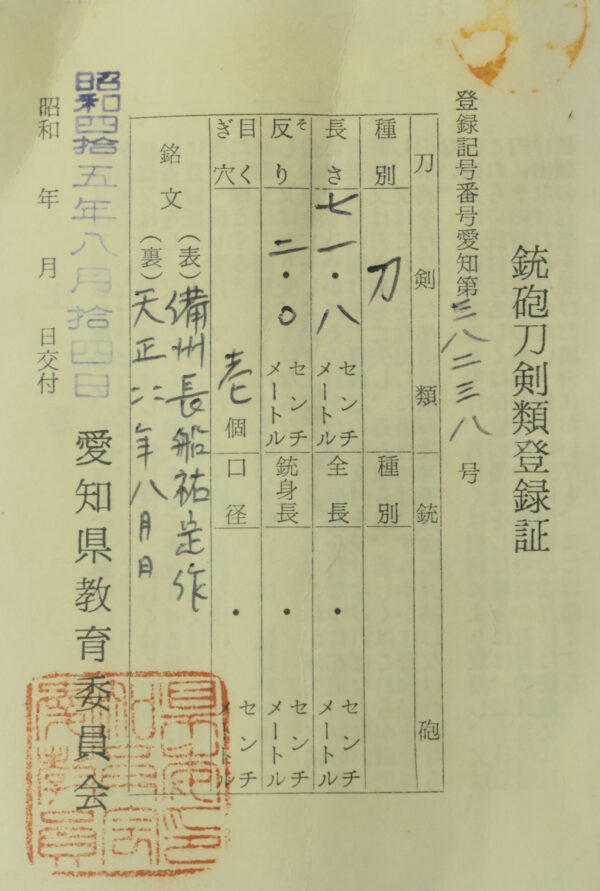 銃砲刀剣類登録証
登録記号番号愛知第三八二三八号
刀剣類
種別 刀
長さ 七一・八 センチメートル
反り そ 二・〇 センチメートル
目くぎ穴 壱個
銘文 (表)備州長船祐定作
(裏)天正二二年八月日
銃砲
種別
全長 ・ センチメートル
銃身長 ・ センチメートル
口径 ・ センチメートル
昭和四拾五年八月拾四日
昭和 年 月 日交付
愛知県教育委員会